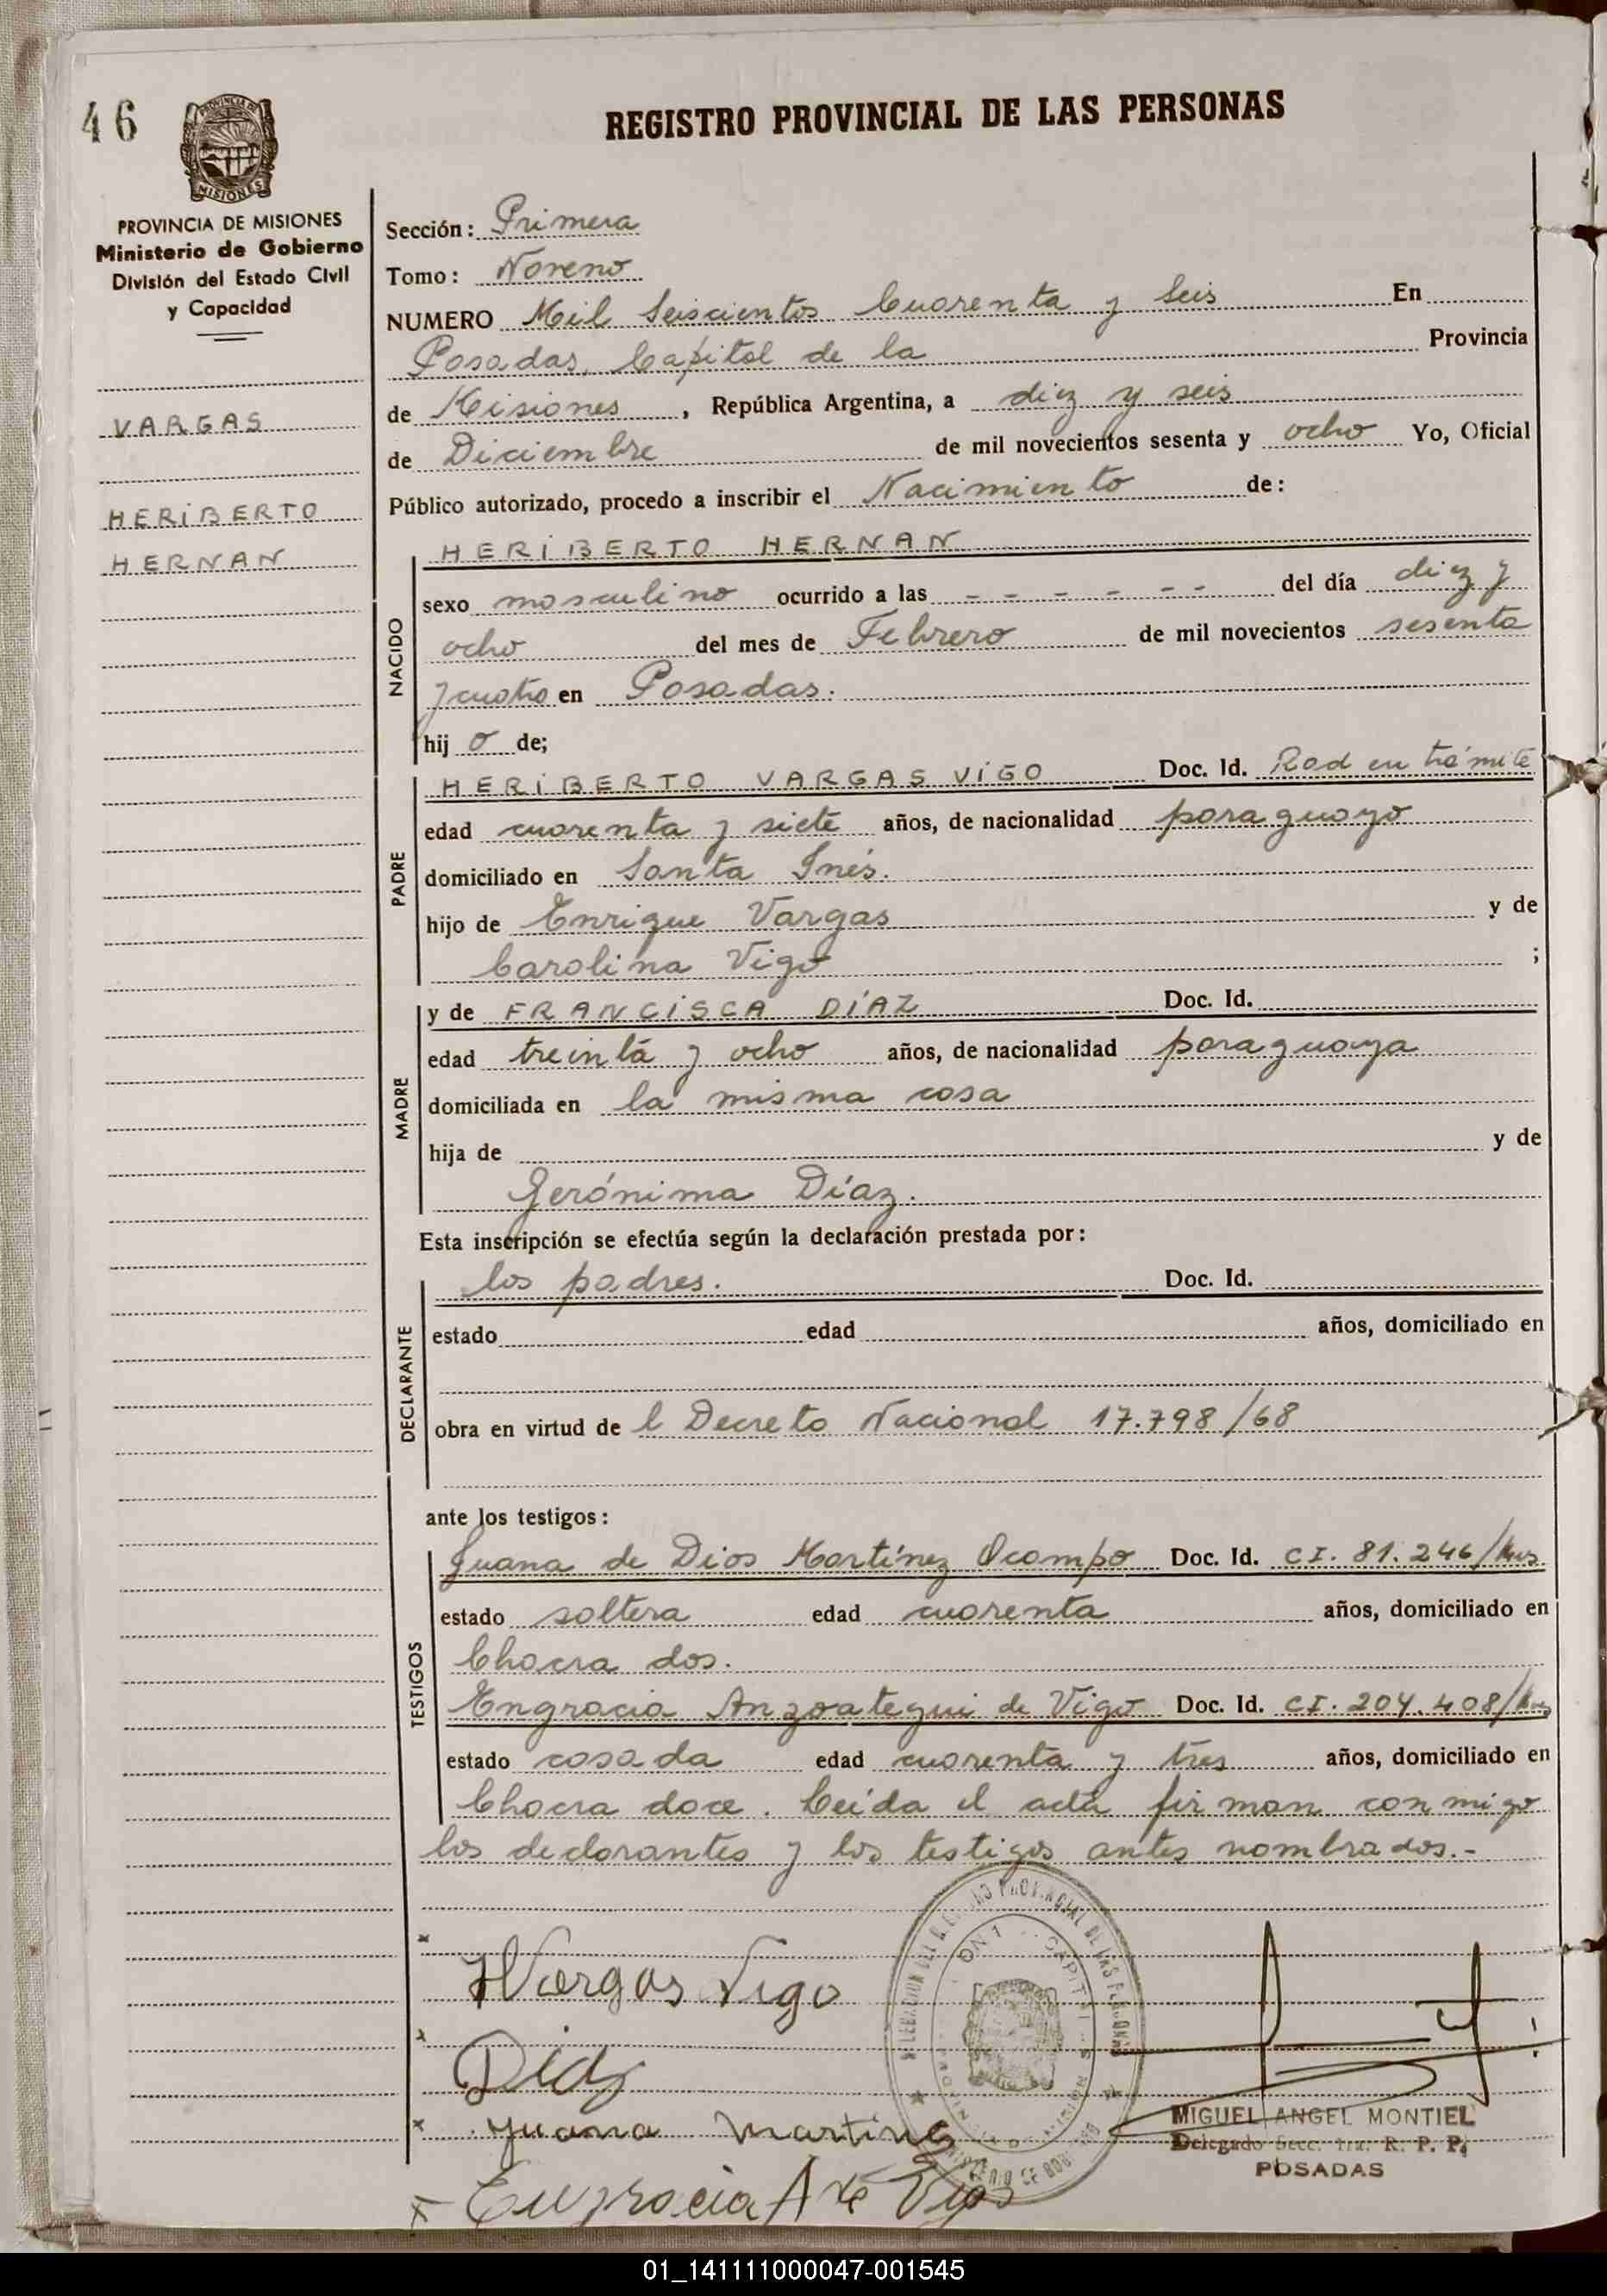 46
PROVINCIA DE
MISIONES
REGISTRO PROVINCIAL DE LAS PERSONAS
PROVINCIA DE MISIONES
Ministerio de Gobierno
División del Estado Civil
y Capacidad
VARGAS
HERIBERTO
HERNAN
Sección: Primera
Tomo: Noveno
NUMERO Mil Seiscientos Cuarenta y Seis En
Posadas, Capital de la Provincia
de Misiones, República Argentina, a diez y seis
de Diciembre de mil novecientos sesenta y ocho Yo, Oficial
Público autorizado, procedo a inscribir el Nacimiento de:
NACIDO
HERIBERTO HERNAN
sexo masculino ocurrido a las - - - - - - del día diez y
ocho del mes de Febrero de mil novecientos sesenta
y cuatro en Posadas.
hij o de;
PADRE
HERIBERTO VARGAS VIGO Doc. Id. Rad en trámite
edad cuarenta y siete años, de nacionalidad paraguayo
domiciliado en Santa Inés.
hijo de Enrique Vargas y de
Carolina Vigo ;
MADRE
y de FRANCISCA DÍAZ Doc. Id.
edad treinta y ocho años, de nacionalidad paraguaya
domiciliada en la misma casa
hija de y de
Jerónima Díaz.
Esta inscripción se efectúa según la declaración prestada por:
DECLARANTE
los padres. Doc. Id.
estado edad años, domiciliado en
obra en virtud de l Decreto Nacional 17.798/68
ante los testigos:
TESTIGOS
Juana de Dios Martínez Ocampo Doc. Id. CI. 81.246/Mns.
estado soltera edad cuarenta años, domiciliado en
Chacra dos.
Engracia Anzoategui de Vigo Doc. Id. CI. 204.408/Mns
estado casada edad cuarenta y tres años, domiciliado en
Chacra doce. Leída el acta firman conmigo
los declarantes y los testigos antes nombrados.-
x
HVargas Vigo
x
Diaz
x Juana Martinez
x Engracia A de Vigo
DELEGACION DEL REGISTRO PROVINCIAL DE LAS PERSONAS
MIGUEL ANGEL MONTIEL
Delegado Secc. 1ra. R. P. P.
POSADAS
01_141111000047-001545